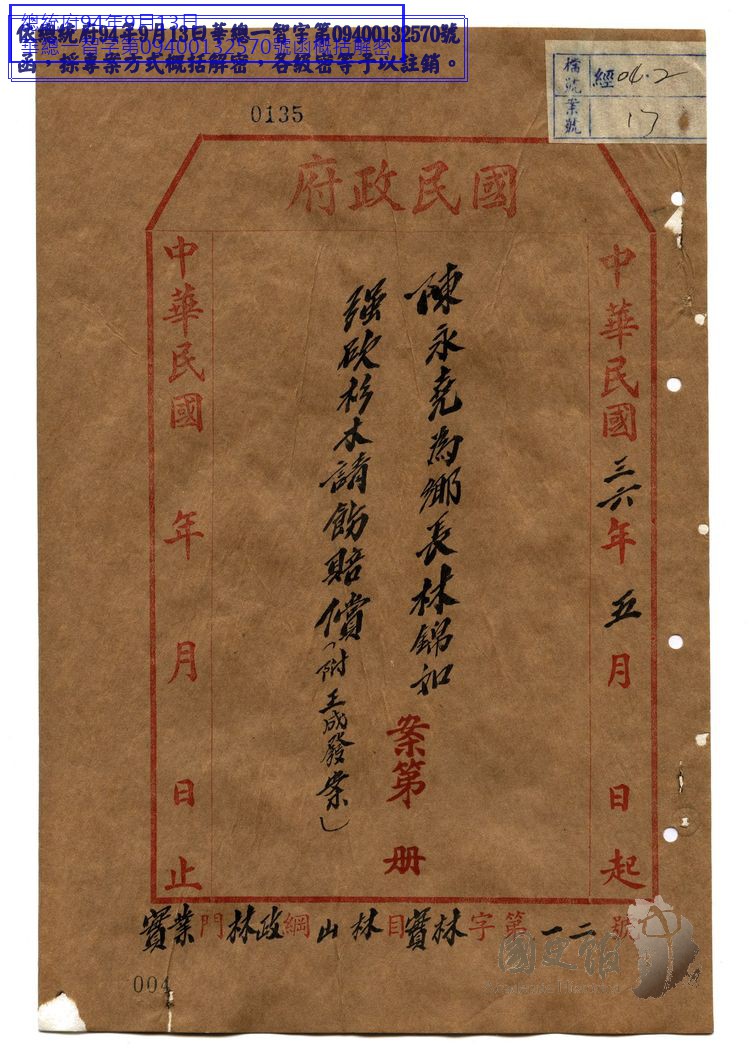 總統府94年9月13日
華總一智字第09400132570號函概括解密
依總統府94年9月13日華總一智字第09400132570號
函，採專案方式概括解密，各級密等予以註銷。
檔號 經04.2
案號 17
0135
國民政府
中華民國三六年五月 日起
陳永堯為鄉長林錦如
強砍杉木請飭賠償(附王成發案)
案第 册
中華民國 年 月 日止
實業門林政綱山林目實林字第一二號
004
國史館